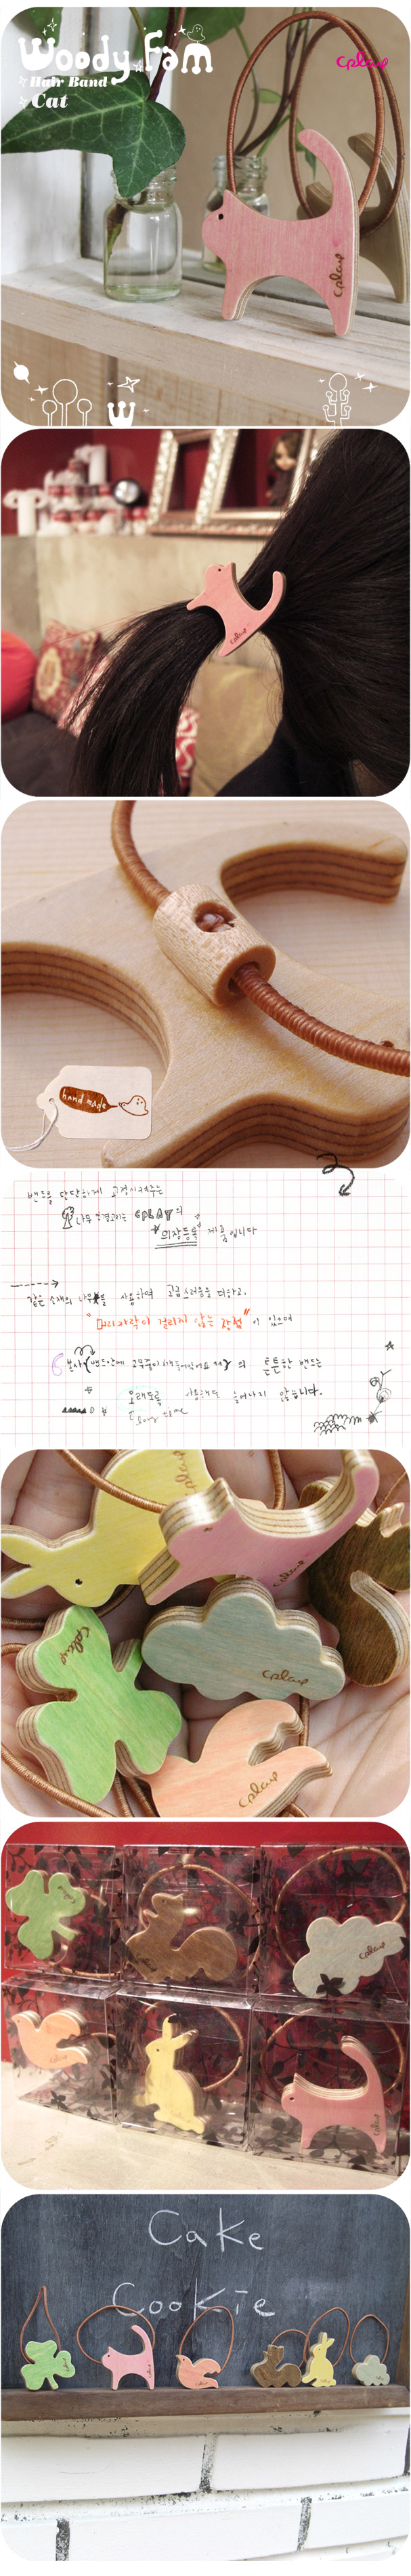 Woody Fam
Hair Band
Cat
cplay
cplay
cplay
hand made
밴드를 단단하게 고정시켜주는
나무 연결고리는 CPLAY의
"의장등록" 제품입니다
같은 소재의 나무를 사용하여 고급스러움을 더하고,
"머리카락이 걸리지 않는 장점"이 있으며
튼튼한 밴드는
오래도록 사용해도 늘어나지 않습니다.
Long time
cplay
cplay
cplay
cplay
cplay
cplay
cplay
cplay
Cake
Cookie